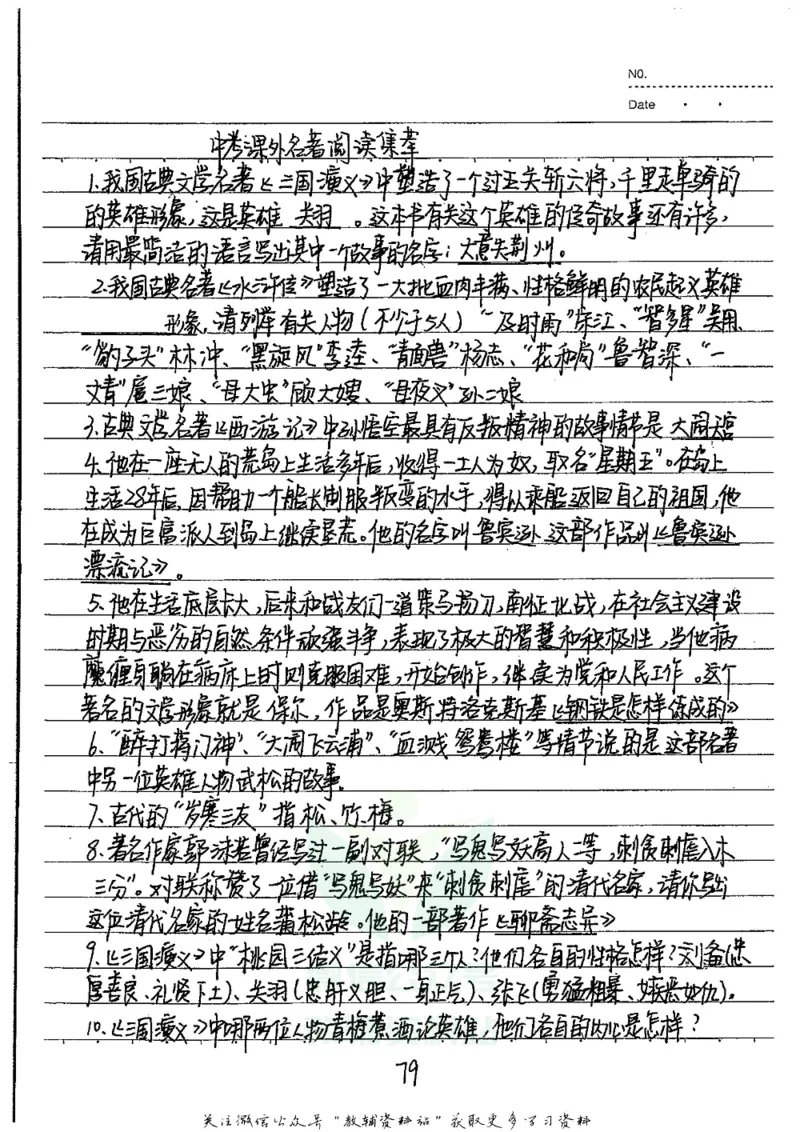 NO.
Date
中考课外名著阅读集萃
1.我国古典文学名著《三国演义》中塑造了一个过五关斩六将,千里走单骑的
的英雄形象,这是英雄 关羽 。这本书有关这个英雄的传奇故事还有许多,
请用最简洁的语言写出其中一个故事的名字:大意失荆州。
2.我国古典名著《水浒传》塑造了一大批血肉丰满、性格鲜明的农民起义英雄
形象,请列举有关人物(不少于5人) "及时雨"宋江、"智多星"吴用、
"豹子头"林冲、"黑旋风"李逵、"青面兽"杨志、"花和尚"鲁智深、"一
丈青"扈三娘、"母大虫"顾大嫂、"母夜叉"孙二娘
3.古典文学名著《西游记》中孙悟空最具有反叛精神的故事情节是 大闹天宫
4.他在一座无人的荒岛上生活多年后,收得一土人为奴,取名"星期五"。在岛上
生活28年后,因帮助一个船长制服叛变的水手,得以乘船返回自己的祖国,他
在成为巨富派人到岛上继续垦荒。他的名字叫鲁宾逊 这部作品叫《鲁宾逊
漂流记》。
5.他在生活底层长大,后来和战友们一道策马扬刀,南征北战,在社会主义建设
时期与恶劣的自然条件顽强斗争,表现了极大的智慧和积极性,当他病
魔缠身躺在病床上时则克服困难,开始创作,继续为党和人民工作。这个
著名的文学形象就是 保尔,作品是奥斯特洛克斯基《钢铁是怎样练成的》
6."醉打蒋门神"、"大闹飞云浦"、"血溅鸳鸯楼"等情节说的是这部名著
中另一位英雄人物武松的故事。
7.古代的"岁寒三友"指松、竹、梅。
8.著名作家郭沫若曾经写过一副对联,"写鬼写妖高人一等,刺贪刺虐入木
三分"。对联称赞了一位借"写鬼写妖"来"刺贪刺虐"的清代名家,请你写出
这位清代名家的姓名蒲松龄。他的一部著作《聊斋志异》
9.《三国演义》中"桃园三结义"是指哪三个人?他们各自的性格怎样?刘备(忠
厚善良、礼贤下士)、关羽(忠肝义胆、一身正气)、张飞(勇猛粗暴、嫉恶如仇)。
10.《三国演义》中哪两位人物青梅煮酒论英雄,他们各自的内心是怎样?
79
关注微信公众号"教辅资料站"获取更多学习资料